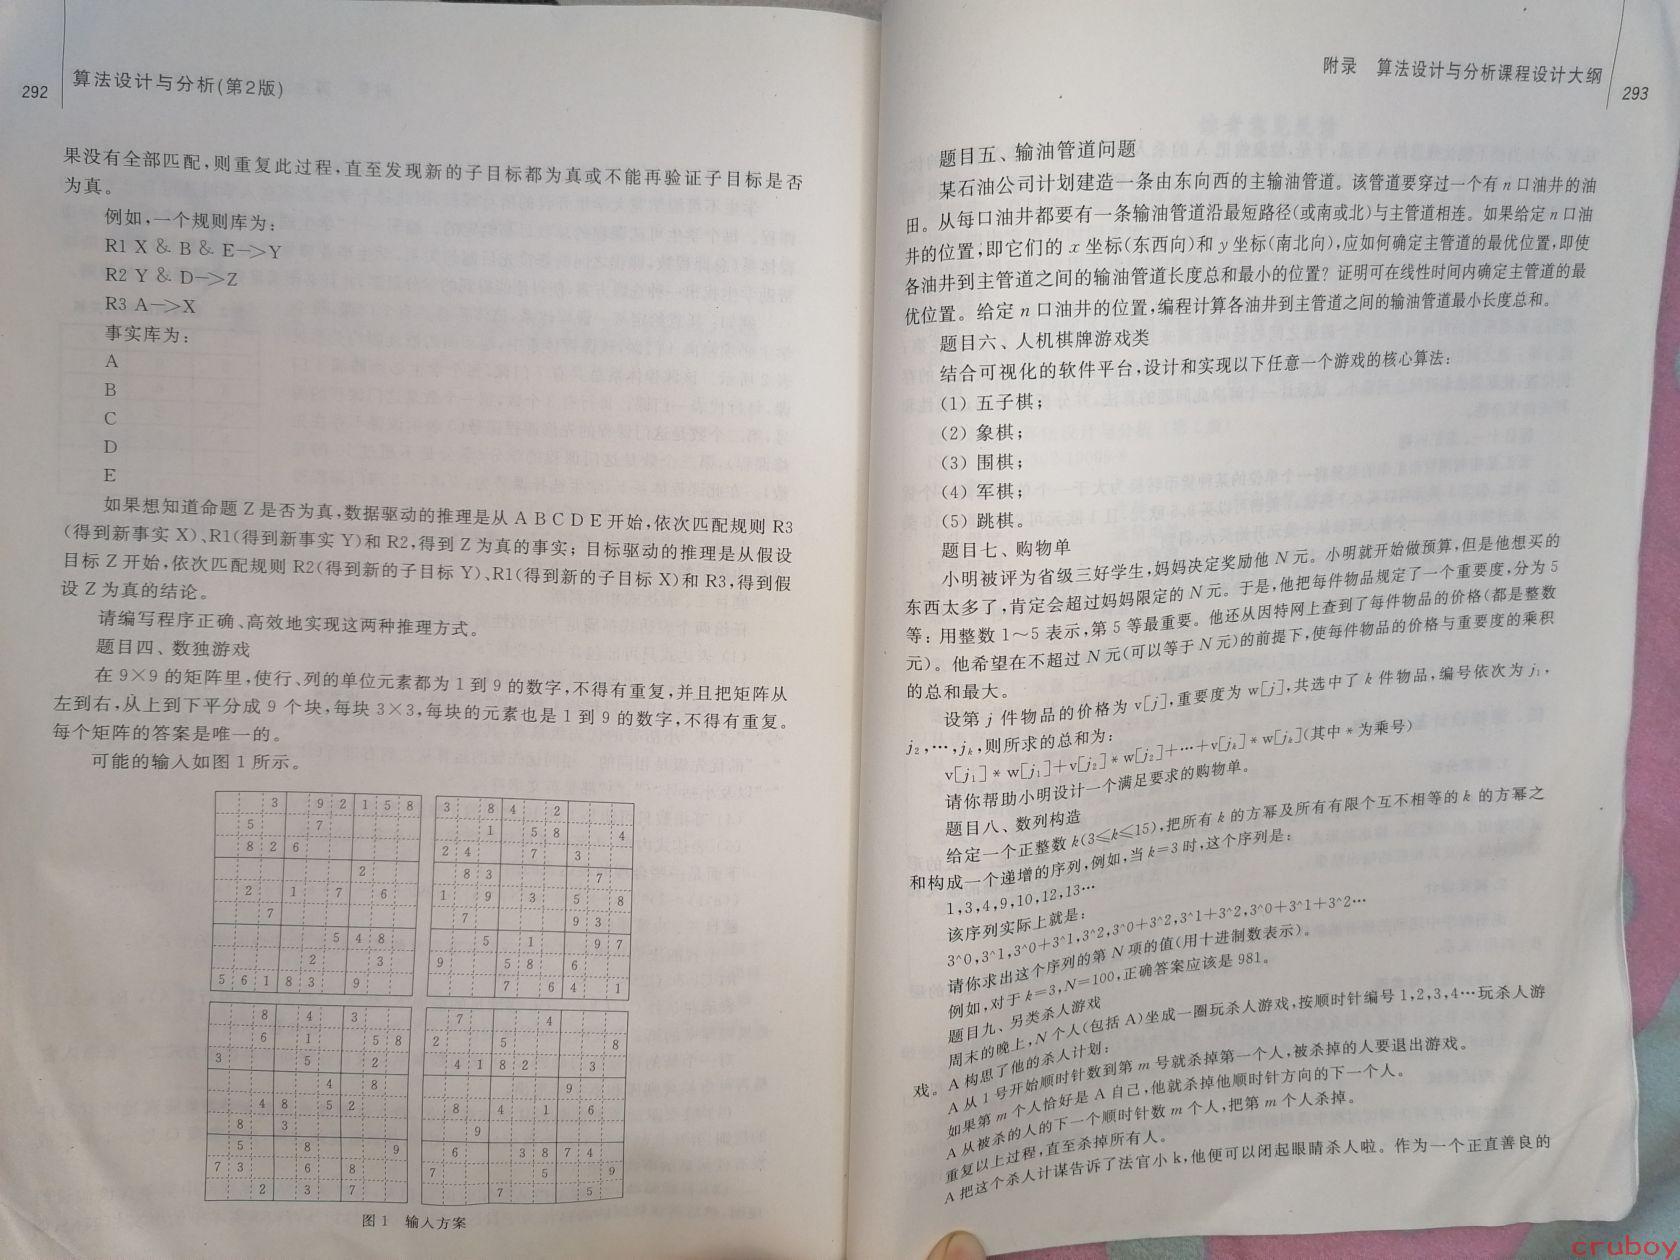 292
算法设计与分析(第2版)
果没有全部匹配,则重复此过程,直至发现新的子目标都为真或不能再验证子目标是否
为真。
例如,一个规则库为:
R1 X & B & E—>Y
R2 Y & D—>Z
R3 A—>X
事实库为:
A
B
C
D
E
如果想知道命题 Z 是否为真,数据驱动的推理是从 A B C D E 开始,依次匹配规则 R3
(得到新事实 X)、R1(得到新事实 Y)和 R2,得到 Z 为真的事实; 目标驱动的推理是从假设
目标 Z 开始,依次匹配规则 R2(得到新的子目标 Y)、R1(得到新的子目标 X)和 R3,得到假
设 Z 为真的结论。
请编写程序正确、高效地实现这两种推理方式。
题目四、数独游戏
在 9×9 的矩阵里,使行、列的单位元素都为 1 到 9 的数字,不得有重复,并且把矩阵从
左到右,从上到下平分成 9 个块,每块 3×3,每块的元素也是 1 到 9 的数字,不得有重复。
每个矩阵的答案是唯一的。
可能的输入如图 1 所示。
3 9 2 1 5 8
5 7
8 2 6
2
2 1 7 6
7
5 4 8
2 3
5 6 1 8 3 9
3 8 4 2
1 5 8 4
2 4 7 3
8 3 7
1 9 3 5 8
7 9 3
5 1 9 7
9 5 8 6
7 6 4 1
8 4 3
6 1 5 8
3 5 2
4 8
4 8 5 2
8 3
5 8 9
7 3 6 8
2 3 7
7 4
2 5 8
4 1 8 2 3
9
8 4 1 6
9
6 3 8 7 4
7 5 9
7 5
图 1 输入方案
附录 算法设计与分析课程设计大纲
293
题目五、输油管道问题
某石油公司计划建造一条由东向西的主输油管道。该管道要穿过一个有 n 口油井的油
田。从每口油井都要有一条输油管道沿最短路径(或南或北)与主管道相连。如果给定 n 口油
井的位置,即它们的 x 坐标(东西向)和 y 坐标(南北向),应如何确定主管道的最优位置,即使
各油井到主管道之间的输油管道长度总和最小的位置? 证明可在线性时间内确定主管道的最
优位置。给定 n 口油井的位置,编程计算各油井到主管道之间的输油管道最小长度总和。
题目六、人机棋牌游戏类
结合可视化的软件平台,设计和实现以下任意一个游戏的核心算法:
(1) 五子棋;
(2) 象棋;
(3) 围棋;
(4) 军棋;
(5) 跳棋。
题目七、购物单
小明被评为省级三好学生,妈妈决定奖励他 N 元。小明就开始做预算,但是他想买的
东西太多了,肯定会超过妈妈限定的 N 元。于是,他把每件物品规定了一个重要度,分为 5
等: 用整数 1～5 表示,第 5 等最重要。他还从因特网上查到了每件物品的价格(都是整数
元)。他希望在不超过 N 元(可以等于 N 元)的前提下,使每件物品的价格与重要度的乘积
的总和最大。
设第 j 件物品的价格为 v[j],重要度为 w[j],共选中了 k 件物品,编号依次为 j₁,
j₂,…,jₖ,则所求的总和为:
v[j₁] * w[j₁]+v[j₂] * w[j₂]+…+v[jₖ] * w[jₖ](其中 * 为乘号)
请你帮助小明设计一个满足要求的购物单。
题目八、数列构造
给定一个正整数 k(3≤k≤15),把所有 k 的方幂及所有有限个互不相等的 k 的方幂之
和构成一个递增的序列,例如,当 k=3 时,这个序列是:
1,3,4,9,10,12,13…
该序列实际上就是:
3^0,3^1,3^0+3^1,3^2,3^0+3^2,3^1+3^2,3^0+3^1+3^2…
请你求出这个序列的第 N 项的值(用十进制数表示)。
例如,对于 k=3,N=100,正确答案应该是 981。
题目九、另类杀人游戏
周末的晚上,N 个人(包括 A)坐成一圈玩杀人游戏,按顺时针编号 1,2,3,4…玩杀人游
戏。A 构思了他的杀人计划:
A 从 1 号开始顺时针数到第 m 号就杀掉第一个人,被杀掉的人要退出游戏。
如果第 m 个人恰好是 A 自己,他就杀掉他顺时针方向的下一个人。
A 从被杀的人的下一个顺时针数 m 个人,把第 m 个人杀掉。
重复以上过程,直至杀掉所有人。
A 把这个杀人计谋告诉了法官小 k,他便可以闭起眼睛杀人啦。作为一个正直善良的
cruboy